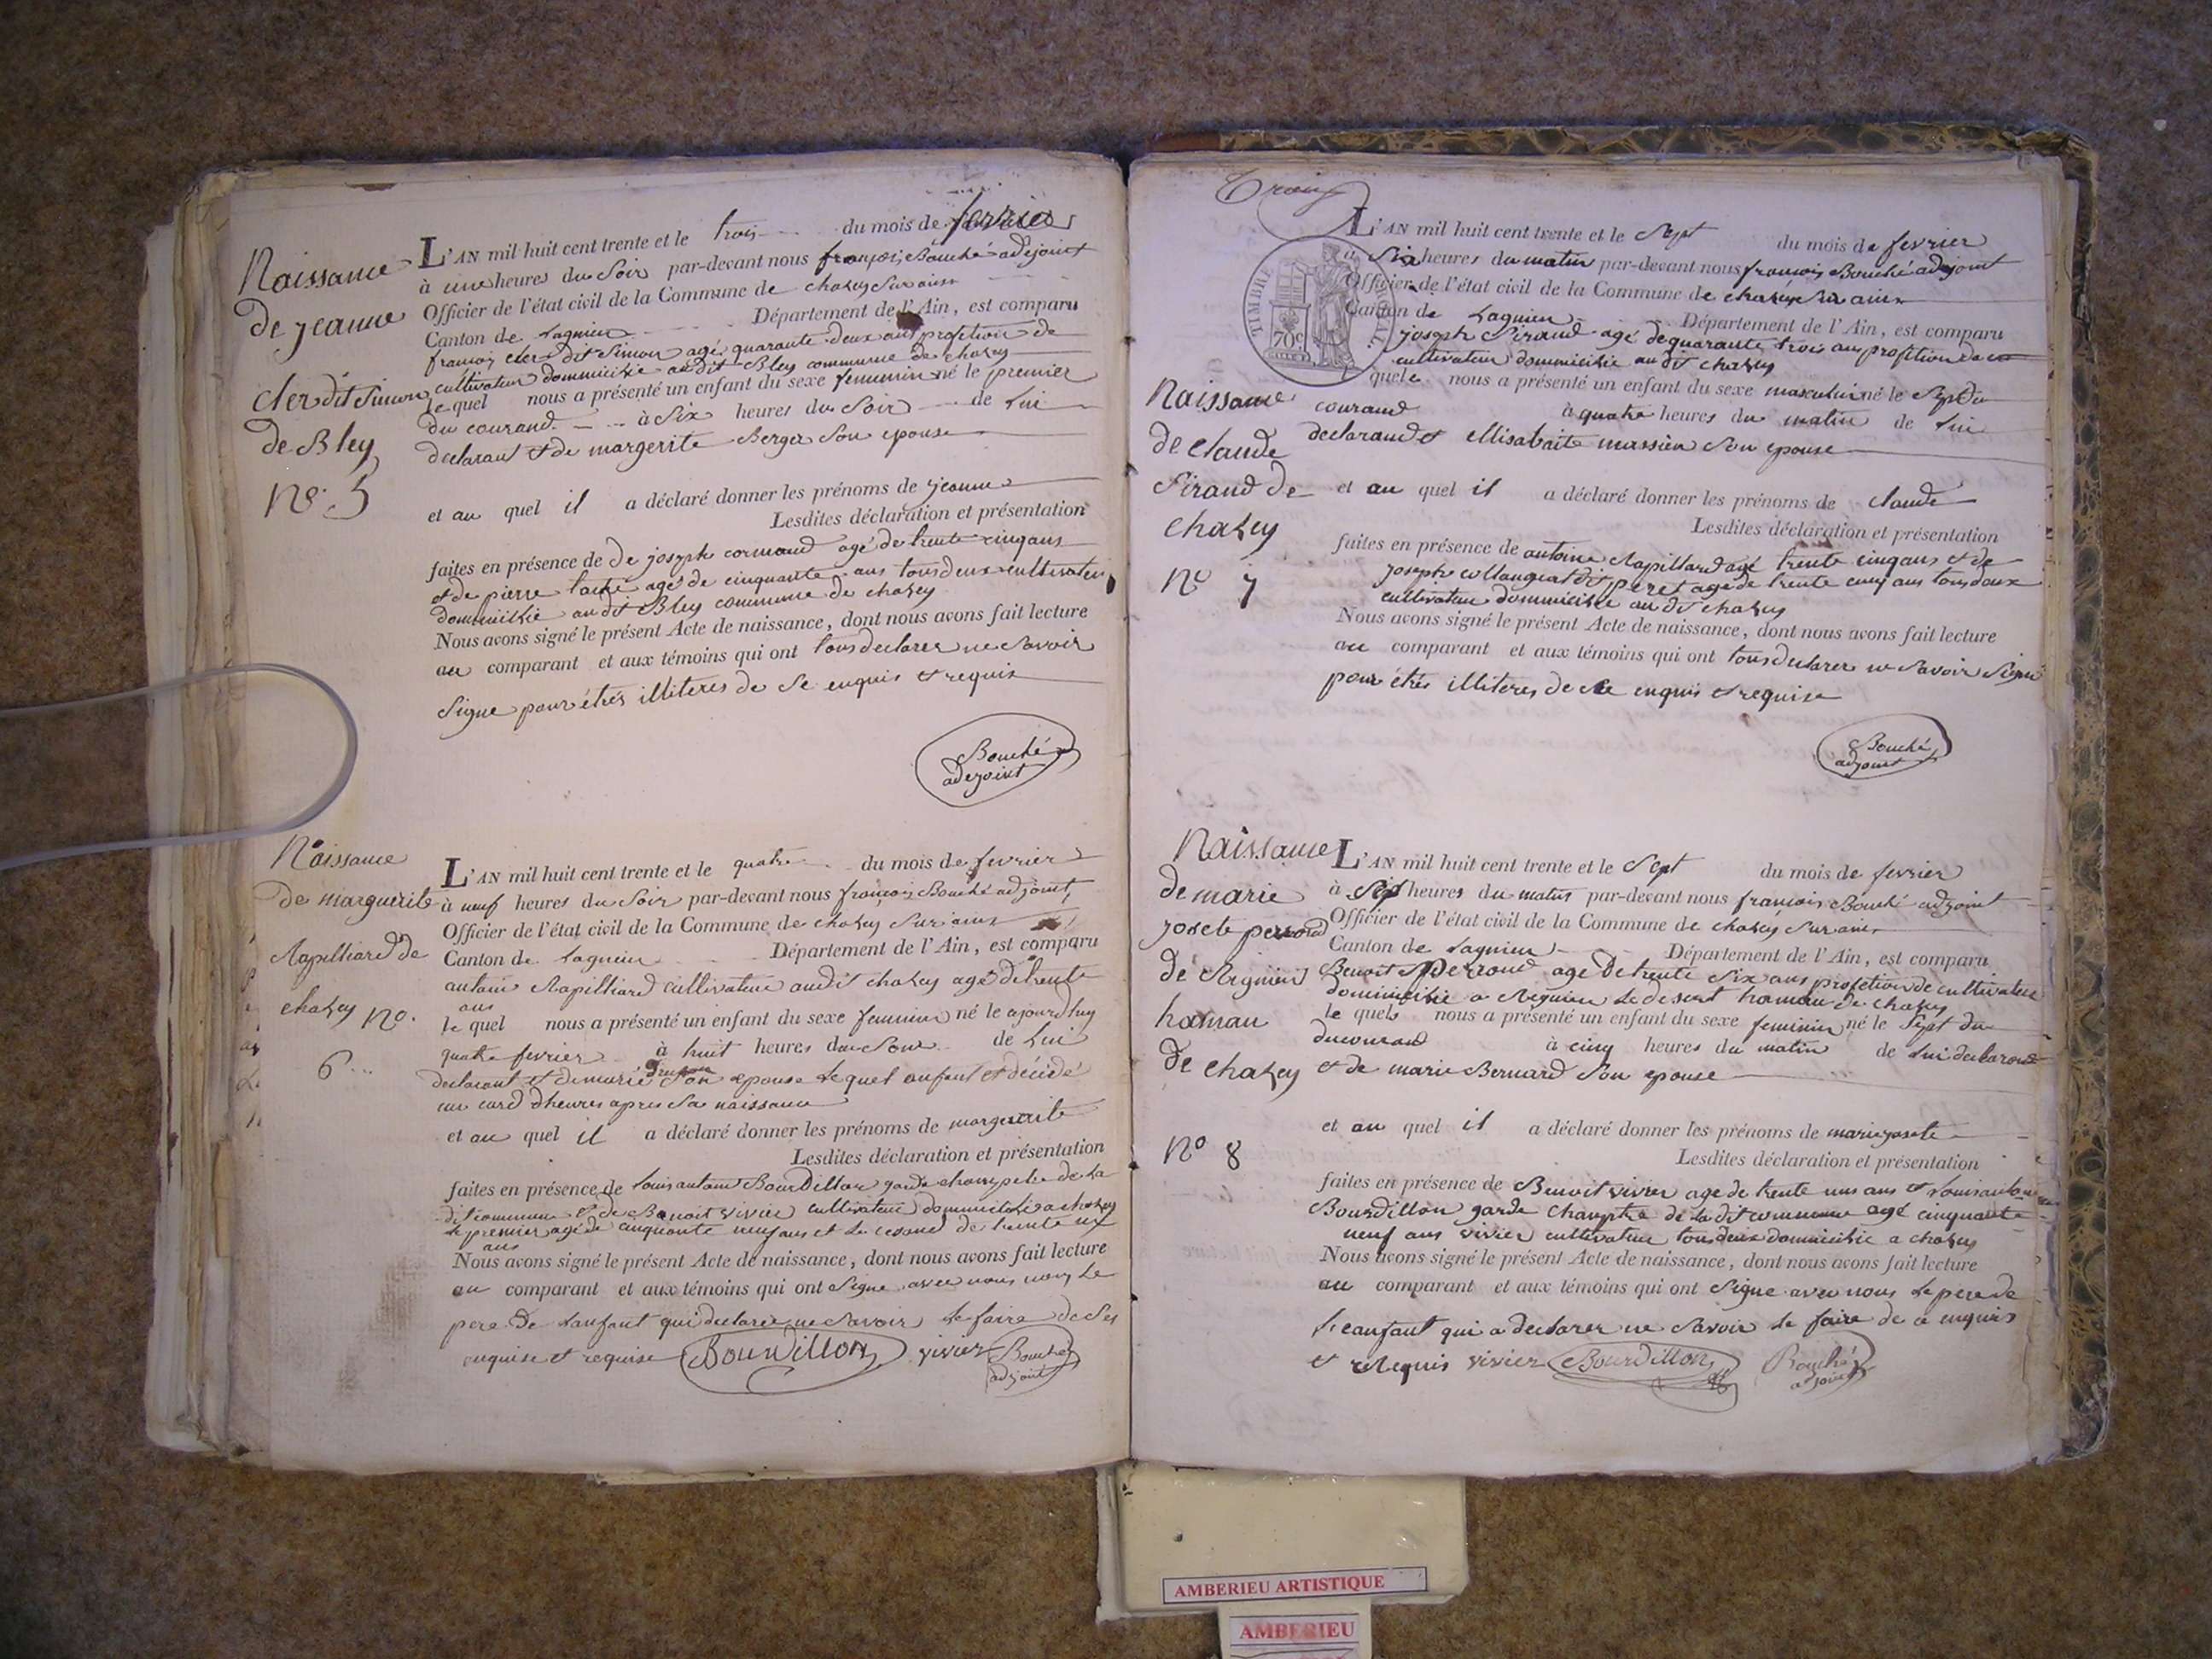 Naissance
de jeanne
clerdit Simon
de Bley
No. 5
L'AN mil huit cent trente et le trois du mois de fevrier
à une heures du Soir par-devant nous françois Bouché adejoint
Officier de l'état civil de la Commune de chazey Sur ainx
Canton de Lagnieu Département de l'Ain, est comparu
françois cler dit Simon agé quarante deux ans profetion de
cultivateur dommicihie audit Bley commune de chazey
le quel nous a présenté un enfant du sexe femminin né le premier
du courand à Six heures du Soir de Lui
declarant et de margerite Berger Son epouse
et au quel il a déclaré donner les prénoms de jeanne
Lesdites déclaration et présentation
faites en présence de de joseph cormand agé de trente cinq ans
et de pierre agé de cinquante ans tous deux cultivateur
dommicihie audit Bley commune de chazey
Nous avons signé le présent Acte de naissance, dont nous avons fait lecture
au comparant et aux témoins qui ont tous declarer ne Savoir
Signe pour étres illiteres de Se enquis et requis
Bouché
adejoint
Naissance
de marguerite
Rapilliard de
chazey No.
6
L'AN mil huit cent trente et le quatre du mois de fevrier
à neuf heures du Soir par-devant nous françois Bouché adjoint
Officier de l'état civil de la Commune de chazey Sur ainx
Canton de Lagnieu Département de l'Ain, est comparu
antoine Rapilliard cultivateur audit chazey agé de trente
ans
le quel nous a présenté un enfant du sexe feminin né le ajourdhuy
quatre fevrier à huit heures du Soir de Lui
declarant et de marie Son epouse Lequel enfant et décidé
un card dheures apres Sa naissance
et au quel il a déclaré donner les prénoms de marguerite
Lesdites déclaration et présentation
faites en présence de Louis antoine Bourdillon garde champetre de La
dit commune et de Benoit vivier cultivateur dommicihie a chazey
Le premier agé de cinquante neuf ans et Le second de trente un
ans
Nous avons signé le présent Acte de naissance, dont nous avons fait lecture
au comparant et aux témoins qui ont Signe avec nous non Le
pere De Lanfant qui declare ne Savoir Le faire de Ses
enquise et requise Bourdillon vivier Bouché
adjoint
L'AN mil huit cent trente et le Sept du mois de fevrier
TIMBRE ROYAL
70c
à Six heures du matin par-devant nous françois Bouché adejoint
Officier de l'état civil de la Commune de chazey Sur ainx
Canton de Lagnieu Département de l'Ain, est comparu
joseph Pirand agé de quarante trois ans profetion de
cultivateur dommicihie au dit chazey
quele nous a présenté un enfant du sexe masculin né le Sept du
courand à quatre heures du matin de Lui
declarand et Ellisabaite massien Son epouse
Naissance
de claude
Pirand de
chazey
No 7
et au quel il a déclaré donner les prénoms de claude
Lesdites déclaration et présentation
faites en présence de antoine Rapilliard agé trente cinq ans et de
joseph collangeat dit peret agé de trente cinq ans tous deux
cultivateur dommicihie au dit chazey
Nous avons signé le présent Acte de naissance, dont nous avons fait lecture
au comparant et aux témoins qui ont tous declarer ne Savoir Signe
pour étres illiteres de Se enquis et requise
Bouché
adjoint
Naissance
de marie
josete perroud
de Rignieu
hamau
de chazey
No 8
L'AN mil huit cent trente et le Sept du mois de fevrier
à Sept heures du matin par-devant nous françois Bouché adjoint
Officier de l'état civil de la Commune de chazey Sur ainx
Canton de Lagnieu Département de l'Ain, est comparu
Benoit Perroud age De trente Six ans profetion de cultivateur
dommicihie a Regnieu Le desert hamau de chazey
le quel nous a présenté un enfant du sexe feminin né le Sept du
ducourand à cinq heures du matin de Lui declarand
et de marie Bernard Son epouse
et au quel il a déclaré donner les prénoms de marie josete
Lesdites déclaration et présentation
faites en présence de Benoit vivier age de trente uns ans et Louis antoine
Bourdillon garde champtre de la dit commune agé cinquante
neuf ans vivier cultivateur tous deux dommicihie a chazey
Nous avons signé le présent Acte de naissance, dont nous avons fait lecture
au comparant et aux témoins qui ont Signe avec nous Le pere de
Leanfant qui a declarer ne Savoir Le faire de ce enquis
et requis vivier Bourdillon Bouché
adjoint
AMBERIEU ARTISTIQUE
AMBERIEU